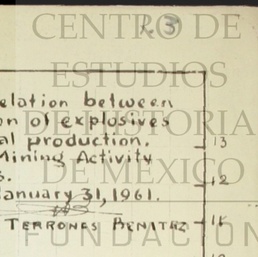 K. 3
CENTRO DE
ESTUDIOS
elation between
on of explosives
DE HISTORIA
al production.
13
Mining Activity
s.
DE MÉXICO
12
January 31, 1961.
TERRONES BENITEZ
11
FUNDACIÓN